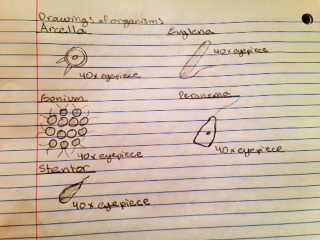 Drawings of organisms
Arcella
Euglena
40x eyepiece
40x eyepiece
Gonium
Peranema
40x eyepiece
40x eyepiece
Stentor
40x eyepiece